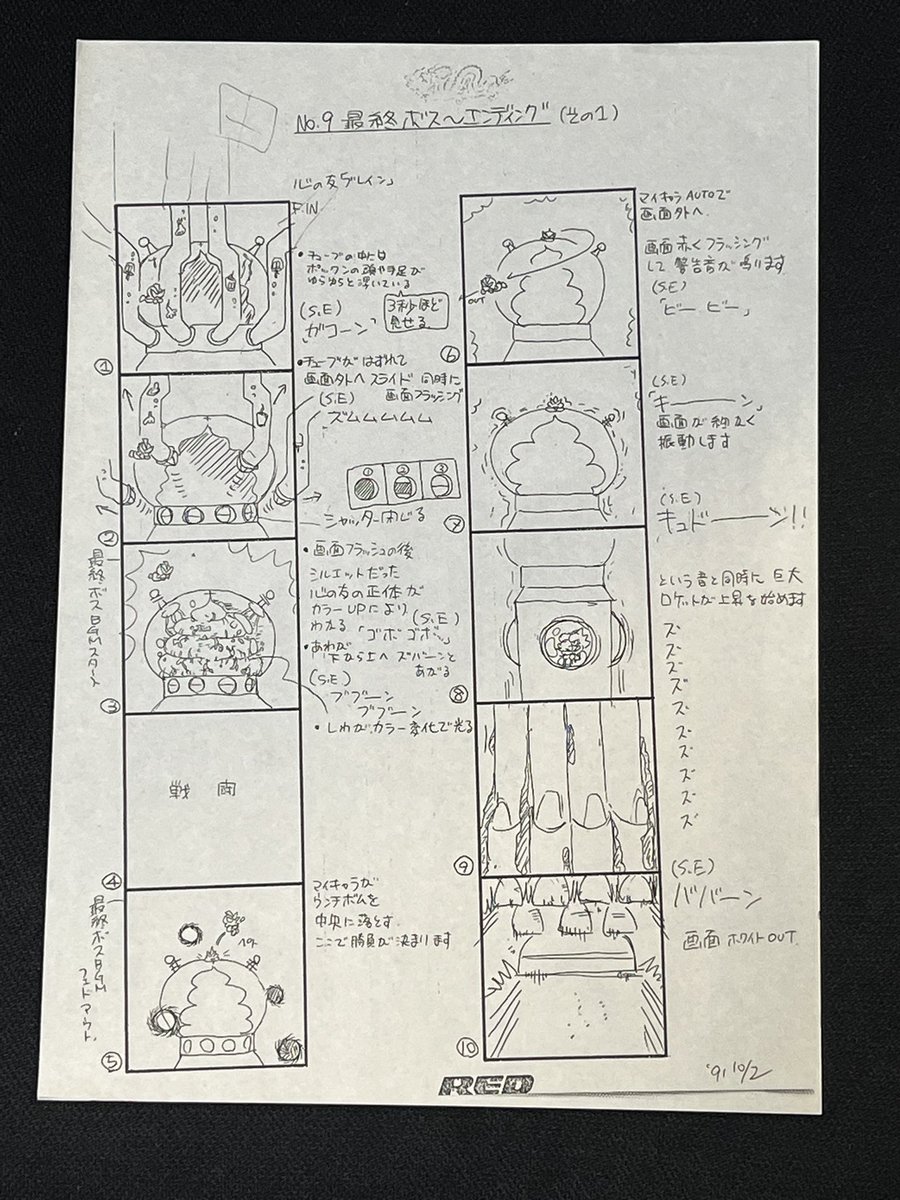 No.9 最終ボス〜エンディング (その1)
心の友「ブレイン」
F.IN
①
・チューブの中には
ポックンの頭や手足が
ゆらゆらと浮いている
(S.E)
「ガコーン」
3秒ほど
見せる
②
・チューブがはずれて
画面外へスライド 同時に
(S.E) 画面フラッシング
ズムムムムム
① ② ③
シャッター閉じる
③
最終ボスBGMスタート
・画面フラッシュの後
シルエットだった
心の友の正体が
カラーUPにより
わかる 「ゴボゴボッ」 (S.E)
・あわが
下から上へ ズバーンと
あがる
(S.E)
ブブーン
ブブーン
・しわがカラー変化で光る
④
戦闘
⑤
最終ボスBGM
フェードアウト
マイキャラが
ウンチボムを
中央に落とす.
ここで勝負が決まります
⑥
OUT
マイキャラAUTOで
画面外へ.
画面赤くフラッシング
して警告音が鳴ります
(S.E)
「ビー ビー」
⑦
(S.E)
「キーーーン」
画面が細かく
振動します
⑧
(S.E)
キュドーーーン!!
という音と同時に巨大
ロケットが上昇を始めます
ズ
ズ
ズ
ズ
ズ
ズ
ズ
ズ
ズ
ズ
⑨
⑩
(S.E)
ババーン
画面 ホワイトOUT.
RED
'91 10/2